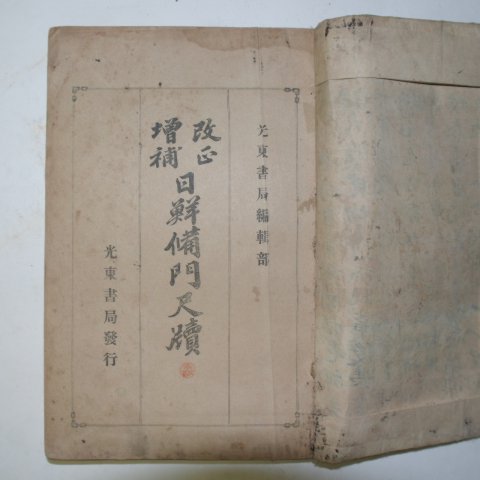 光東書局編輯部
改正
增補
日鮮備門尺牘
光東書局發行